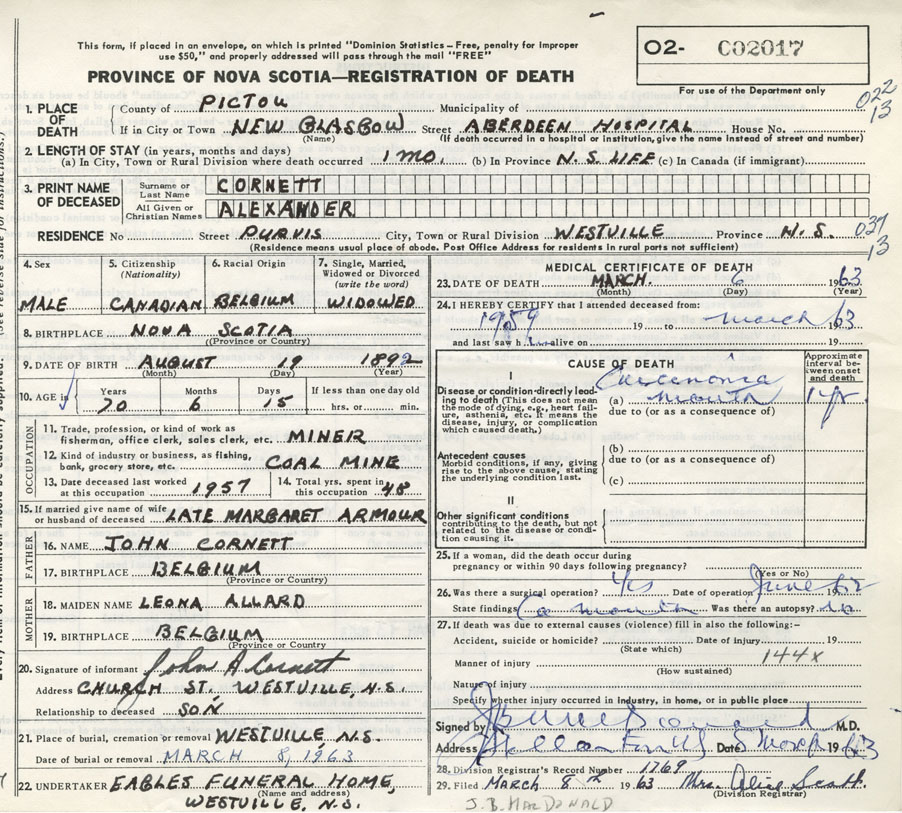 This form, if placed in an envelope, on which is printed "Dominion Statistics—Free, penalty for improper
use $50," and properly addressed will pass through the mail "FREE"
O2- C02017
For use of the Department only
PROVINCE OF NOVA SCOTIA—REGISTRATION OF DEATH
022
13
1. PLACE OF DEATH
County of PICTOU Municipality of
If in City or Town NEW GLASGOW Street ABERDEEN HOSPITAL House No.
(Name) (If death occurred in a hospital or institution, give the name instead of street and number)
2. LENGTH OF STAY (in years, months and days)
(a) In City, Town or Rural Division where death occurred 1 MO. (b) In Province N.S. LIFE (c) In Canada (if immigrant)
3. PRINT NAME OF DECEASED
Surname or Last Name CORNETT
All Given or Christian Names ALEXANDER
RESIDENCE No Street PURVIS City, Town or Rural Division WESTVILLE Province N.S.
(Residence means usual place of abode. Post Office Address for residents in rural parts not sufficient)
037
13
4. Sex
MALE
5. Citizenship
(Nationality)
CANADIAN
6. Racial Origin
BELGIUM
7. Single, Married,
Widowed or Divorced
(write the word)
WIDOWED
8. BIRTHPLACE NOVA SCOTIA
(Province or Country)
9. DATE OF BIRTH AUGUST 19 1892
(Month) (Day) (Year)
10. AGE in
Years Months Days If less than one day old
70 6 15 hrs. or min.
OCCUPATION
11. Trade, profession, or kind of work as
fisherman, office clerk, sales clerk, etc. MINER
12. Kind of industry or business, as fishing,
bank, grocery store, etc. COAL MINE
13. Date deceased last worked
at this occupation 1957
14. Total yrs. spent in
this occupation 48
15. If married give name of wife
or husband of deceased LATE MARGARET ARMOUR
FATHER
16. NAME JOHN CORNETT
17. BIRTHPLACE BELGIUM
(Province or Country)
MOTHER
18. MAIDEN NAME LEONA ALLARD
19. BIRTHPLACE BELGIUM
(Province or Country)
20. Signature of informant John A Cornett
Address CHURCH ST. WESTVILLE, N.S.
Relationship to deceased SON
21. Place of burial, cremation or removal WESTVILLE N.S.
Date of burial or removal MARCH 8, 1963
22. UNDERTAKER EAGLES FUNERAL HOME,
(Name and address)
WESTVILLE, N.S.
MEDICAL CERTIFICATE OF DEATH
23. DATE OF DEATH MARCH 6 1963
(Month) (Day) (Year)
24. I HEREBY CERTIFY that I attended deceased from:
1959 19 to March 1963
and last saw h alive on 19
CAUSE OF DEATH
Approximate
interval be-
tween onset
and death
I
Disease or condition directly lead-
ing to death (This does not mean
the mode of dying, e.g., heart failure,
asthenia, etc. It means the
disease, injury, or complication
which caused death.)
Carcenoma
(a) mouth 1 yr
due to (or as a consequence of)
Antecedent causes
Morbid conditions, if any, giving
rise to the above cause, stating
the underlying condition last.
(b)
due to (or as a consequence of)
(c)
II
Other significant conditions
contributing to the death, but not
related to the disease or condi-
tion causing it.
25. If a woman, did the death occur during
pregnancy or within 90 days following pregnancy?
(Yes or No)
26. Was there a surgical operation? Yes Date of operation June 1962
State findings Ca mouth Was there an autopsy? no
27. If death was due to external causes (violence) fill in also the following:-
Accident, suicide or homicide? Date of injury 19
(State which)
144X
Manner of injury
(How sustained)
Nature of injury
Specify whether injury occurred in Industry, in home, or in public place
Signed by M.D.
Address Date 1963
28. Division Registrar's Record Number 1769
29. Filed MARCH 8th 1963 Mrs. Alice Scott.
(Division Registrar)
J.B. MacDONALD